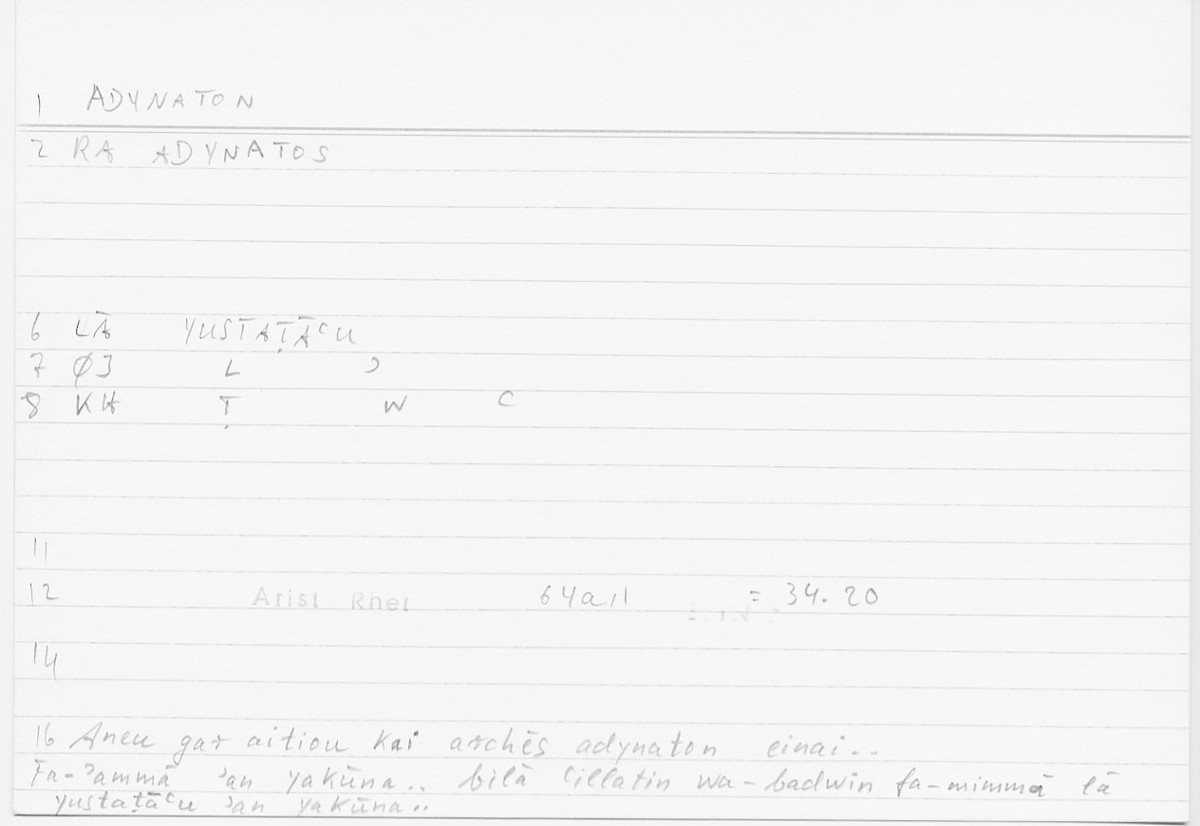 1 ADYNATON
2 RA ADYNATOS
6 LĀ YUSTAṬĀʿU
7 ØJ L ʾ
8 KH Ṭ W ʿ
11
12 Arist Rhet 64a11 = 34.20
14
16 Aneu gar aitiou kai archēs adynaton einai..
Fa-ʾammā ʾan yakūna.. bilā ʿillatin wa-badwin fa-mimmā lā
yustaṭāʿu ʾan yakūna..